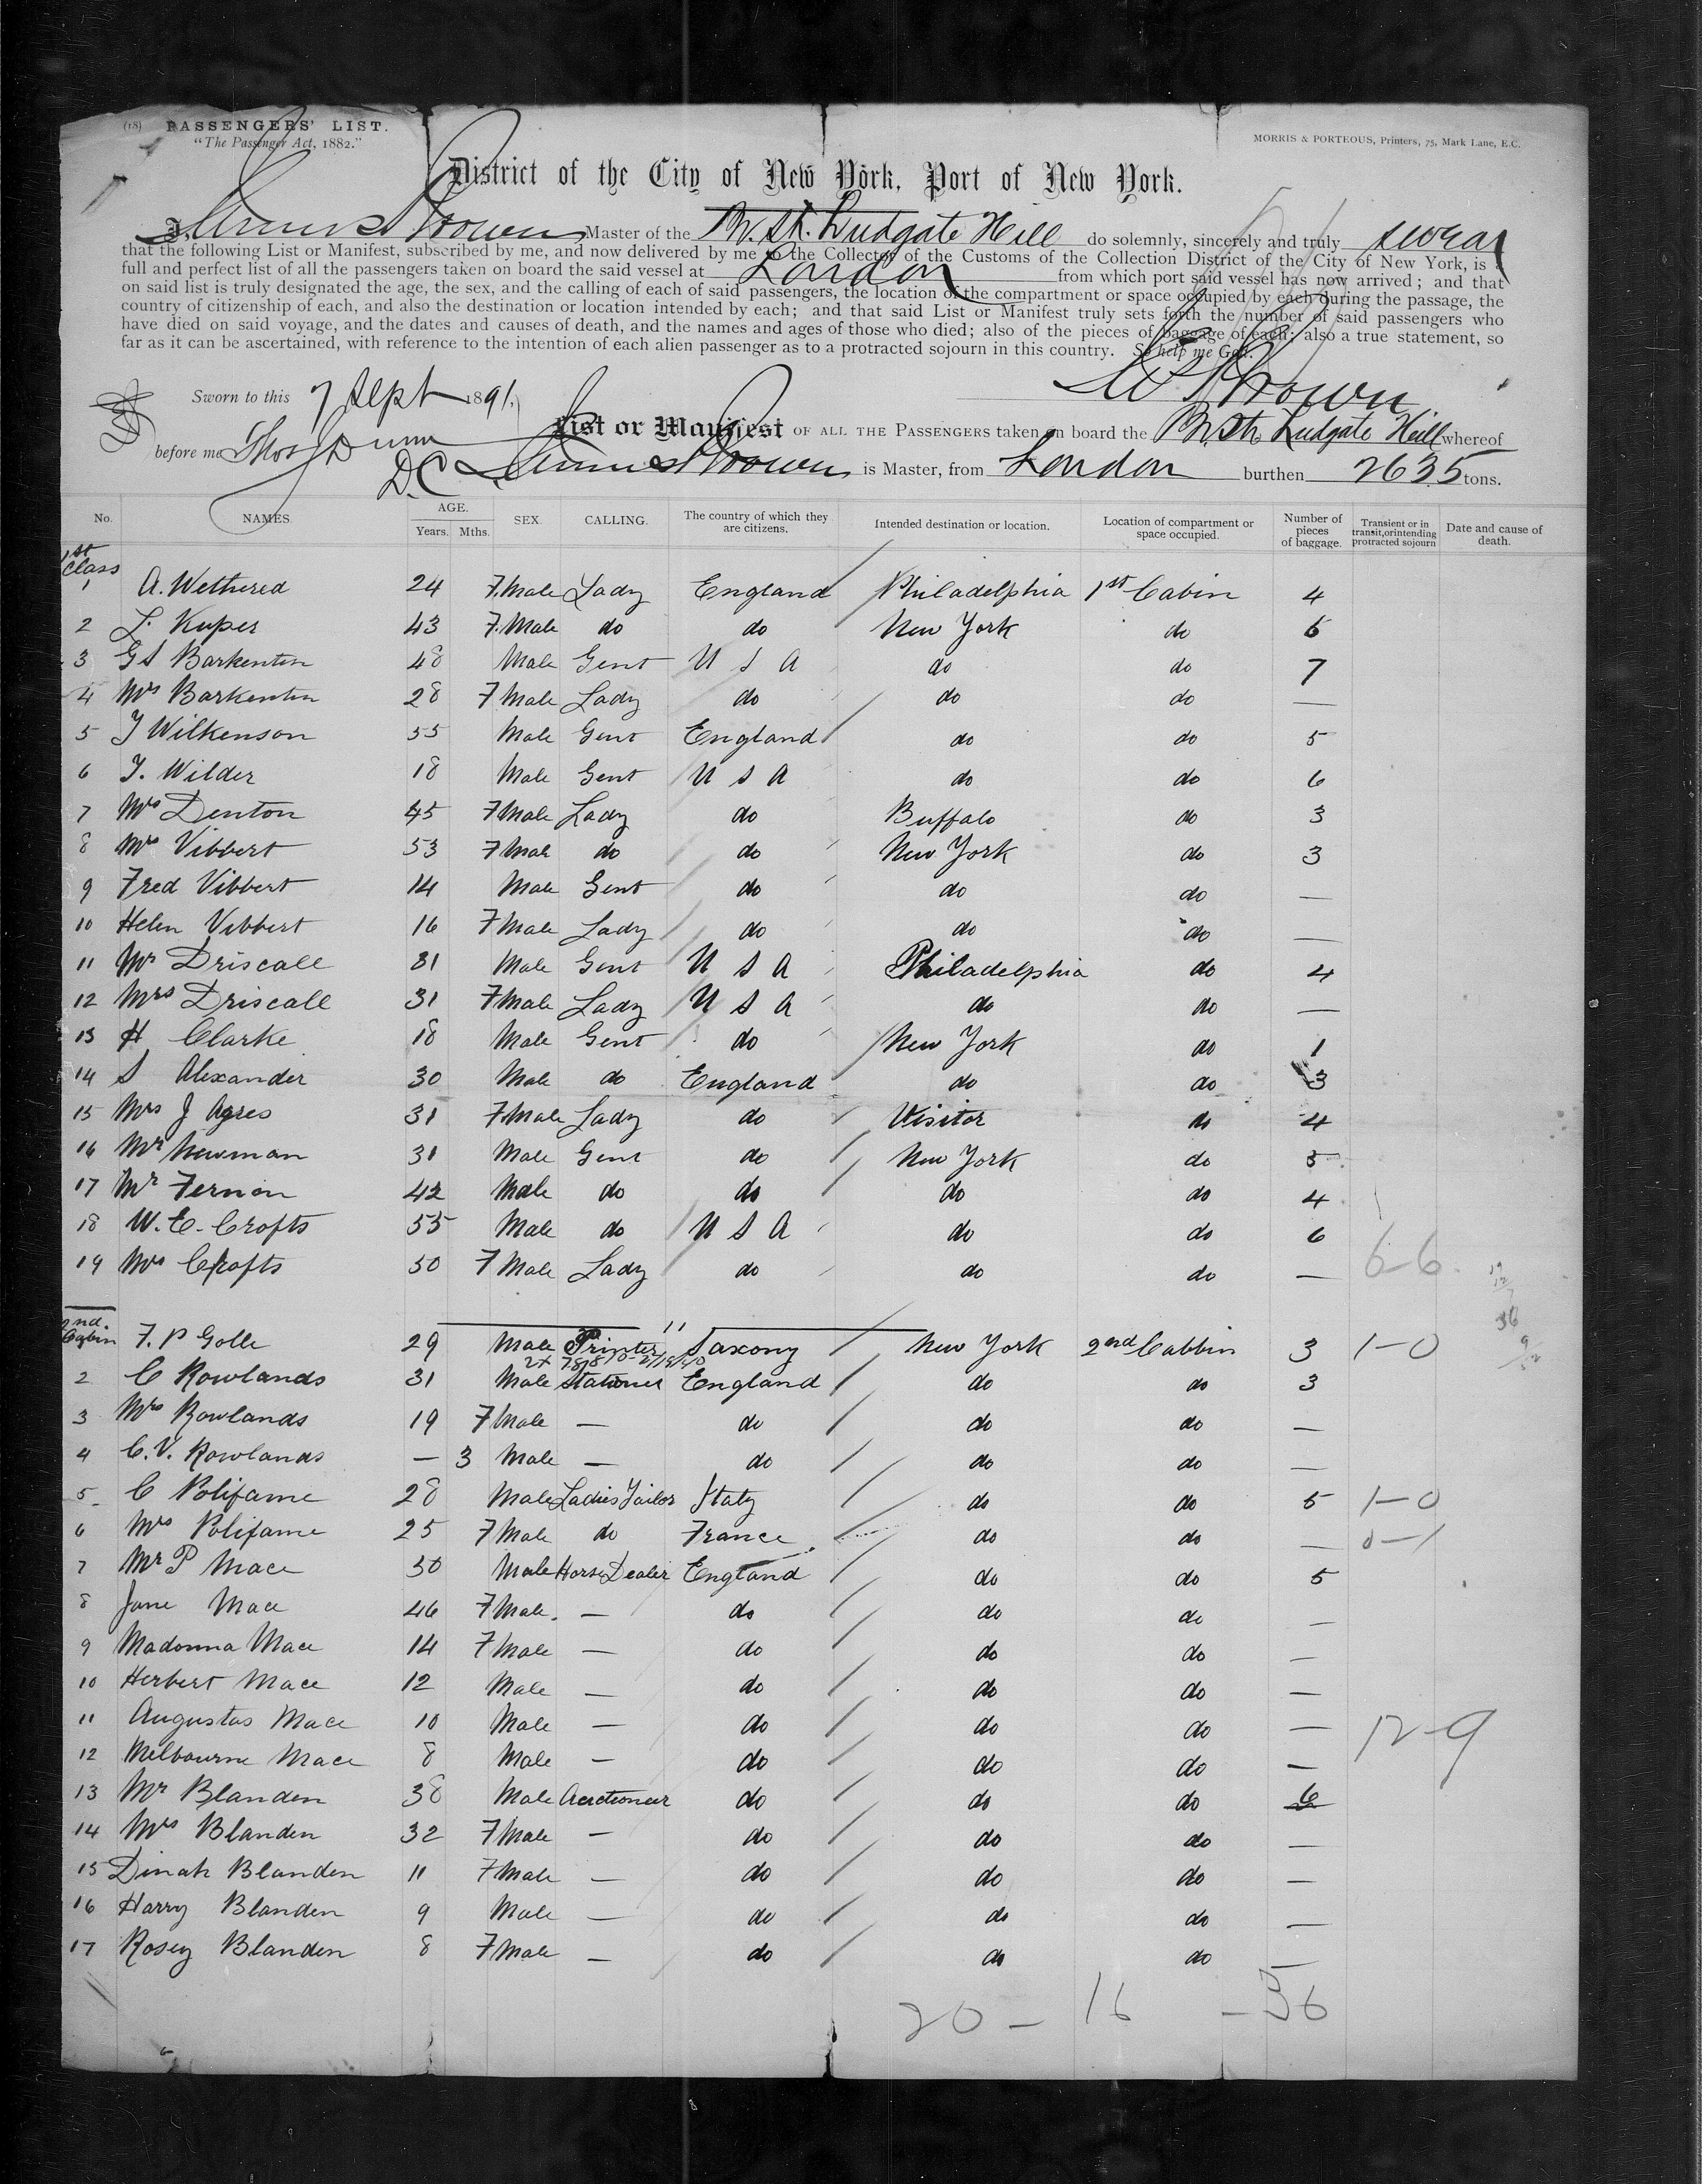 (18) PASSENGERS' LIST.
"The Passenger Act, 1882."
MORRIS & PORTEOUS, Printers, 75, Mark Lane, E.C.
District of the City of New York, Port of New York.
I, Brown Master of the Br. Str. Ludgate Hill do solemnly, sincerely and truly swear
that the following List or Manifest, subscribed by me, and now delivered by me to the Collector of the Customs of the Collection District of the City of New York, is a
full and perfect list of all the passengers taken on board the said vessel at London from which port said vessel has now arrived; and that
on said list is truly designated the age, the sex, and the calling of each of said passengers, the location of the compartment or space occupied by each during the passage, the
country of citizenship of each, and also the destination or location intended by each; and that said List or Manifest truly sets forth the number of said passengers who
have died on said voyage, and the dates and causes of death, and the names and ages of those who died; also of the pieces of baggage of each; also a true statement, so
far as it can be ascertained, with reference to the intention of each alien passenger as to a protracted sojourn in this country. So help me God.
Brown
Sworn to this 7 Sept 1891,
before me Thos J Dunn
D.C.
List or Manifest OF ALL THE PASSENGERS taken on board the Br. Str. Ludgate Hill whereof
Brown is Master, from London burthen 2635 tons.
No. NAMES. AGE. Years. Mths. SEX. CALLING. The country of which they are citizens. Intended destination or location. Location of compartment or space occupied. Number of pieces of baggage. Transient or in transit, or intending protracted sojourn Date and cause of death.
1st Class
1 A. Wethered 24 F.Male Lady England Philadelphia 1st Cabin 4
2 L. Kuper 43 F.Male do do New York do 6
3 G S Barkentin 48 Male Gent U S A do do 7
4 Mrs Barkentin 28 F Male Lady do do do —
5 J Wilkenson 55 Male Gent England do do 5
6 J. Wilder 18 Male Gent U S A do do 6
7 Mrs Denton 45 F Male Lady do Buffalo do 3
8 Mrs Vibbert 53 F Male do do New York do 3
9 Fred Vibbert 14 Male Gent do do do —
10 Helen Vibbert 16 F Male Lady do do do —
11 Mr Driscall 31 Male Gent U S A Philadelphia do 4
12 Mrs Driscall 31 F Male Lady U S A do do —
13 H Clarke 18 Male Gent do New York do 1
14 S Alexander 30 Male do England do do 3
15 Mrs J Agres 31 F Male Lady do Visitor do 4
16 Mr Newman 31 Male Gent do New York do 5
17 Mr Fernon 42 Male do do do do 4
18 W. E. Crofts 55 Male do U S A do do 6
19 Mrs Crofts 50 F Male Lady do do do — 6-6
2nd. Cabin F. P Golle 29 Male Printer Saxony New York 2nd Cabbin 3 1-0
2 C Rowlands 31 Male Stationer England do do 3
3 Mrs Rowlands 19 F Male — do do do —
4 C. V. Rowlands — 3 Male — do do do —
5 C Polifame 28 Male Ladies Tailor Italy do do 5 1-0
6 Mrs Polifame 25 F Male do France do do — 0-1
7 Mr P Mace 30 Male Horse Dealer England do do 5
8 Jane Mace 46 F Male. — do do do —
9 Madonna Mace 14 F Male — do do do —
10 Herbert Mace 12 Male — do do do —
11 Augustas Mace 10 Male — do do do — 12-9
12 Melbourne Mace 8 Male — do do do —
13 Mr Blanden 38 Male Auctioneer do do do 6
14 Mrs Blanden 32 F Male — do do do —
15 Dinah Blanden 11 F Male — do do do —
16 Harry Blanden 9 Male — do do do —
17 Rosey Blanden 8 F Male — do do do —
20 - 16 - 36